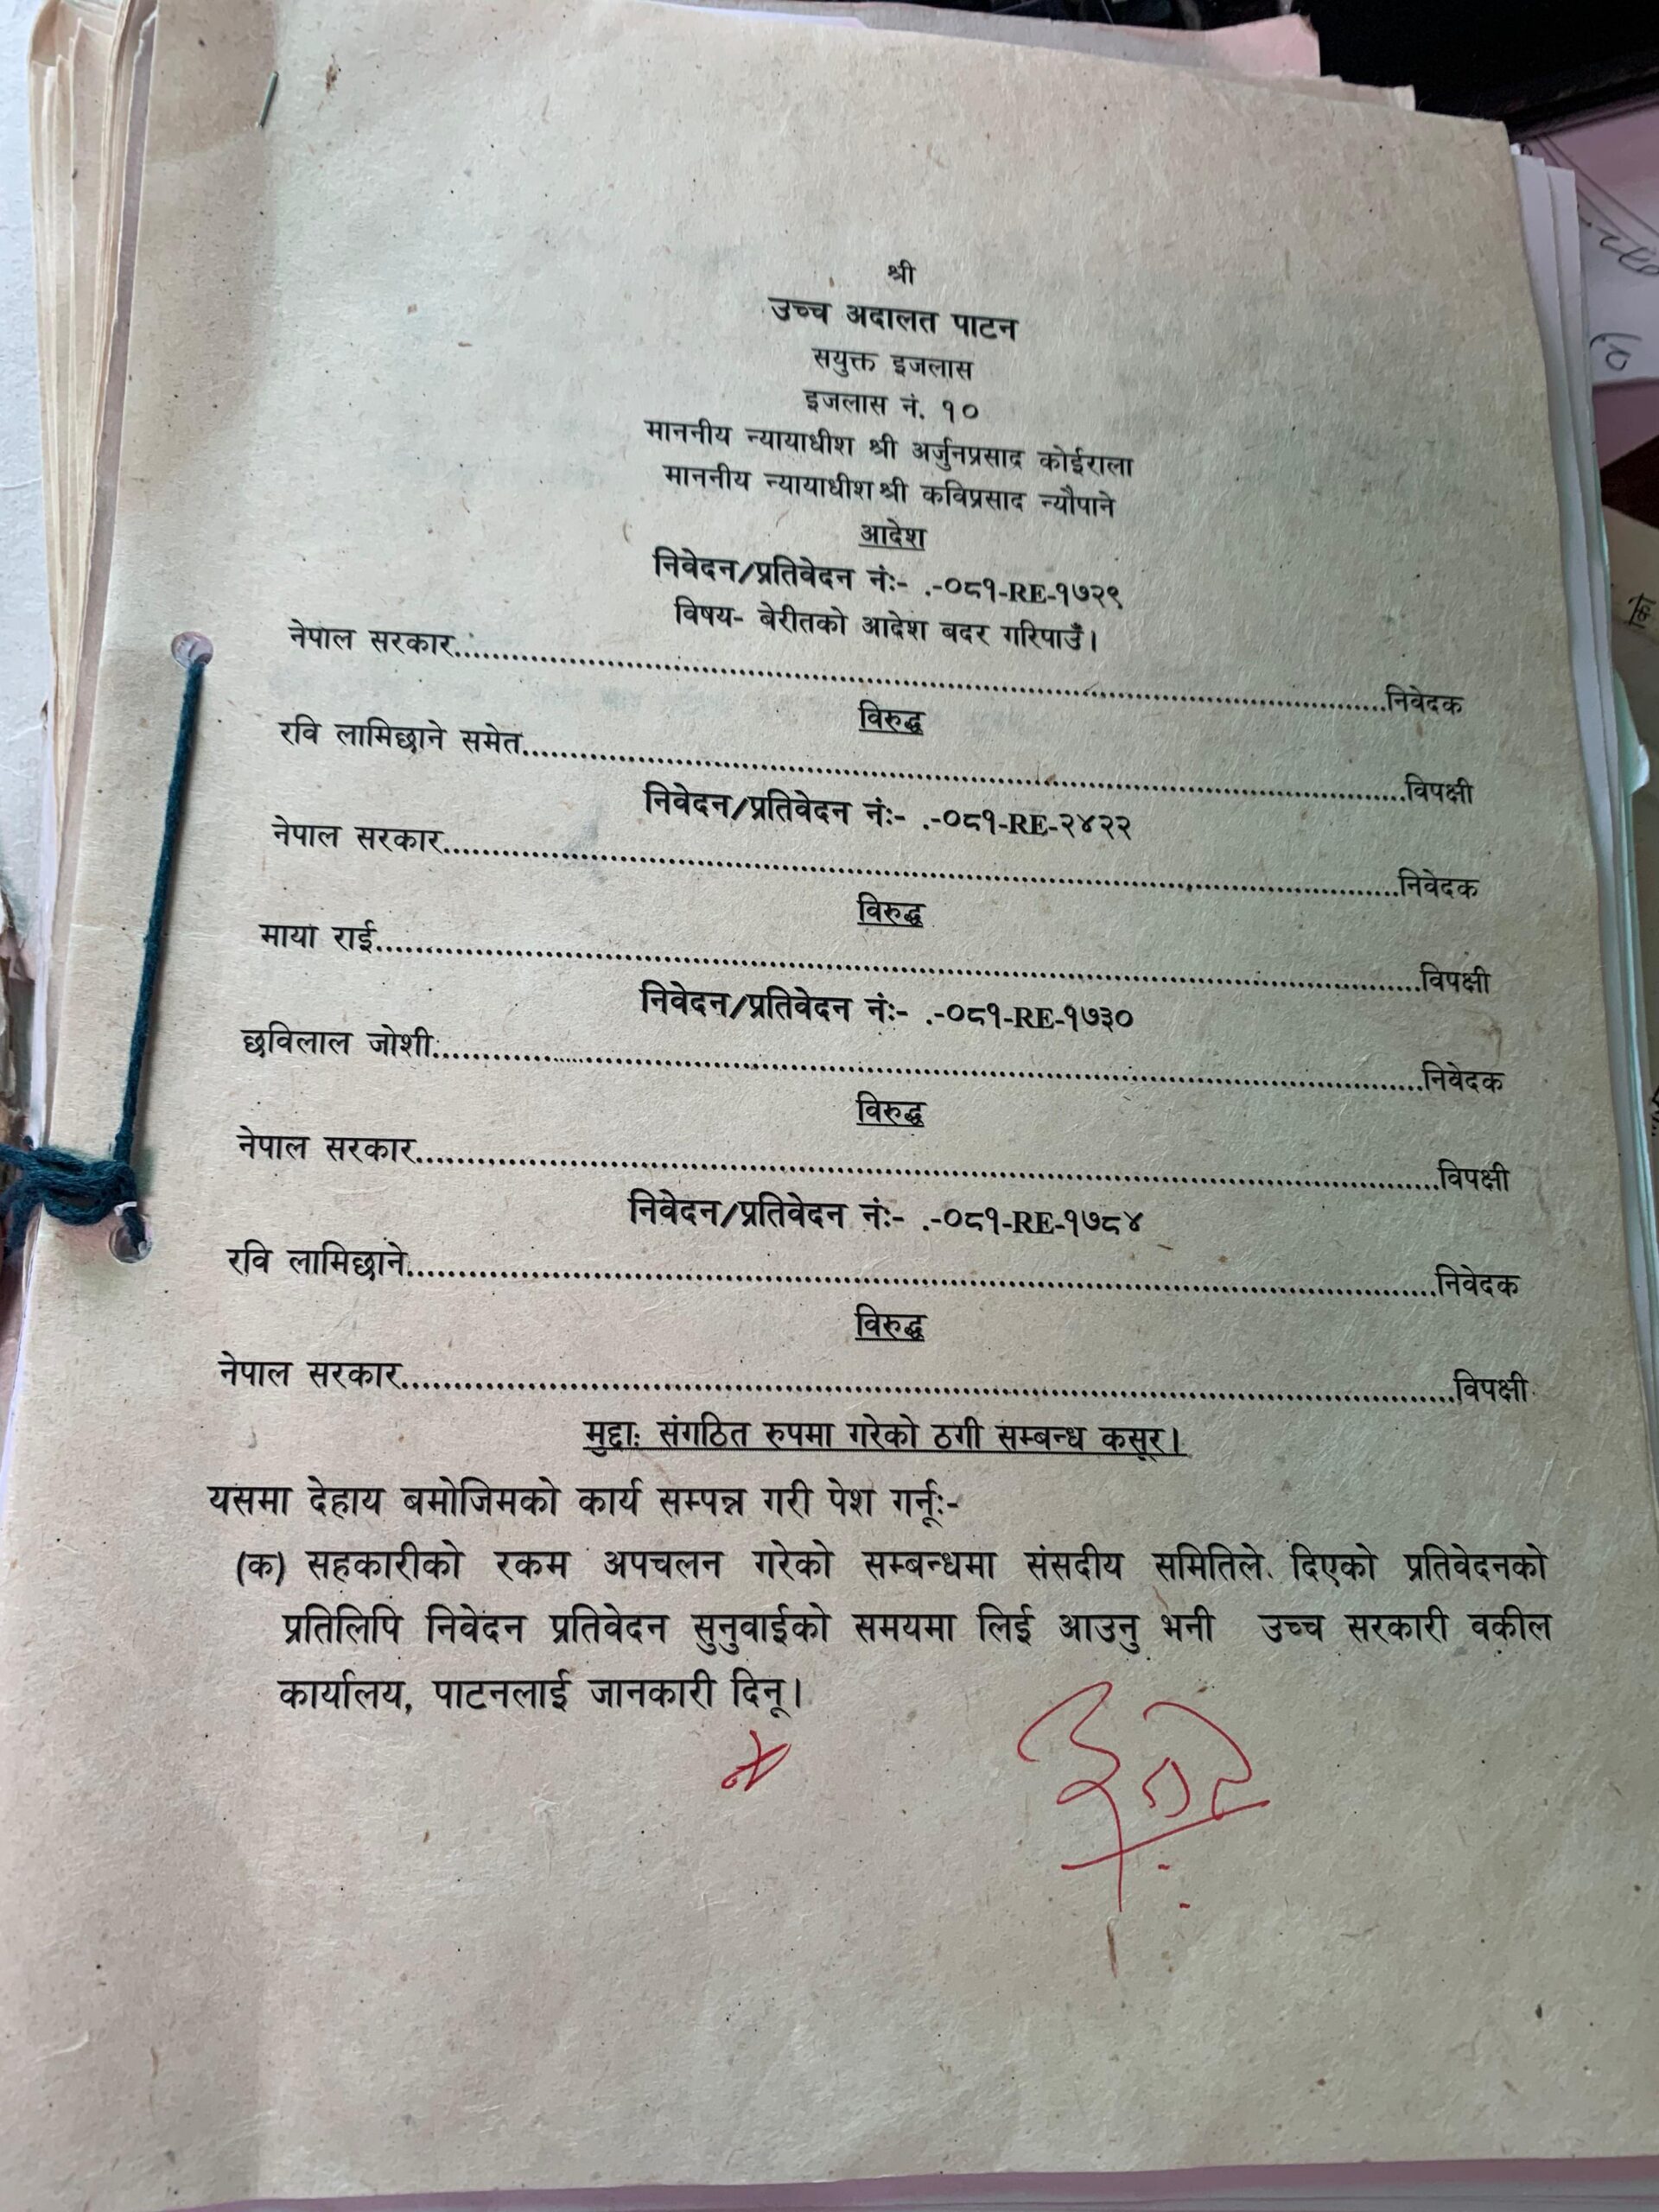 श्री
उच्च अदालत पाटन
सयुक्त इजलास
इजलास नं. १०
माननीय न्यायाधीश श्री अर्जुनप्रसाद कोईराला
माननीय न्यायाधीश श्री कविप्रसाद न्यौपाने
आदेश
निवेदन/प्रतिवेदन नंः- .-०८१-RE-१७२९
विषय- बेरीतको आदेश बदर गरिपाउँ।
नेपाल सरकार........................................निवेदक
विरुद्ध
रवि लामिछाने समेत........................................विपक्षी
निवेदन/प्रतिवेदन नंः- .-०८१-RE-२४२२
नेपाल सरकार........................................निवेदक
विरुद्ध
माया राई........................................विपक्षी
निवेदन/प्रतिवेदन नंः- .-०८१-RE-१७३०
छविलाल जोशी........................................निवेदक
विरुद्ध
नेपाल सरकार........................................विपक्षी
निवेदन/प्रतिवेदन नंः- .-०८१-RE-१७८४
रवि लामिछाने........................................निवेदक
विरुद्ध
नेपाल सरकार........................................विपक्षी
मुद्दाः संगठित रुपमा गरेको ठगी सम्बन्ध कसूर।
यसमा देहाय बमोजिमको कार्य सम्पन्न गरी पेश गर्नूः-
(क) सहकारीको रकम अपचलन गरेको सम्बन्धमा संसदीय समितिले दिएको प्रतिवेदनको
प्रतिलिपि निवेदन प्रतिवेदन सुनुवाईको समयमा लिई आउनु भनी उच्च सरकारी वकील
कार्यालय, पाटनलाई जानकारी दिनू।